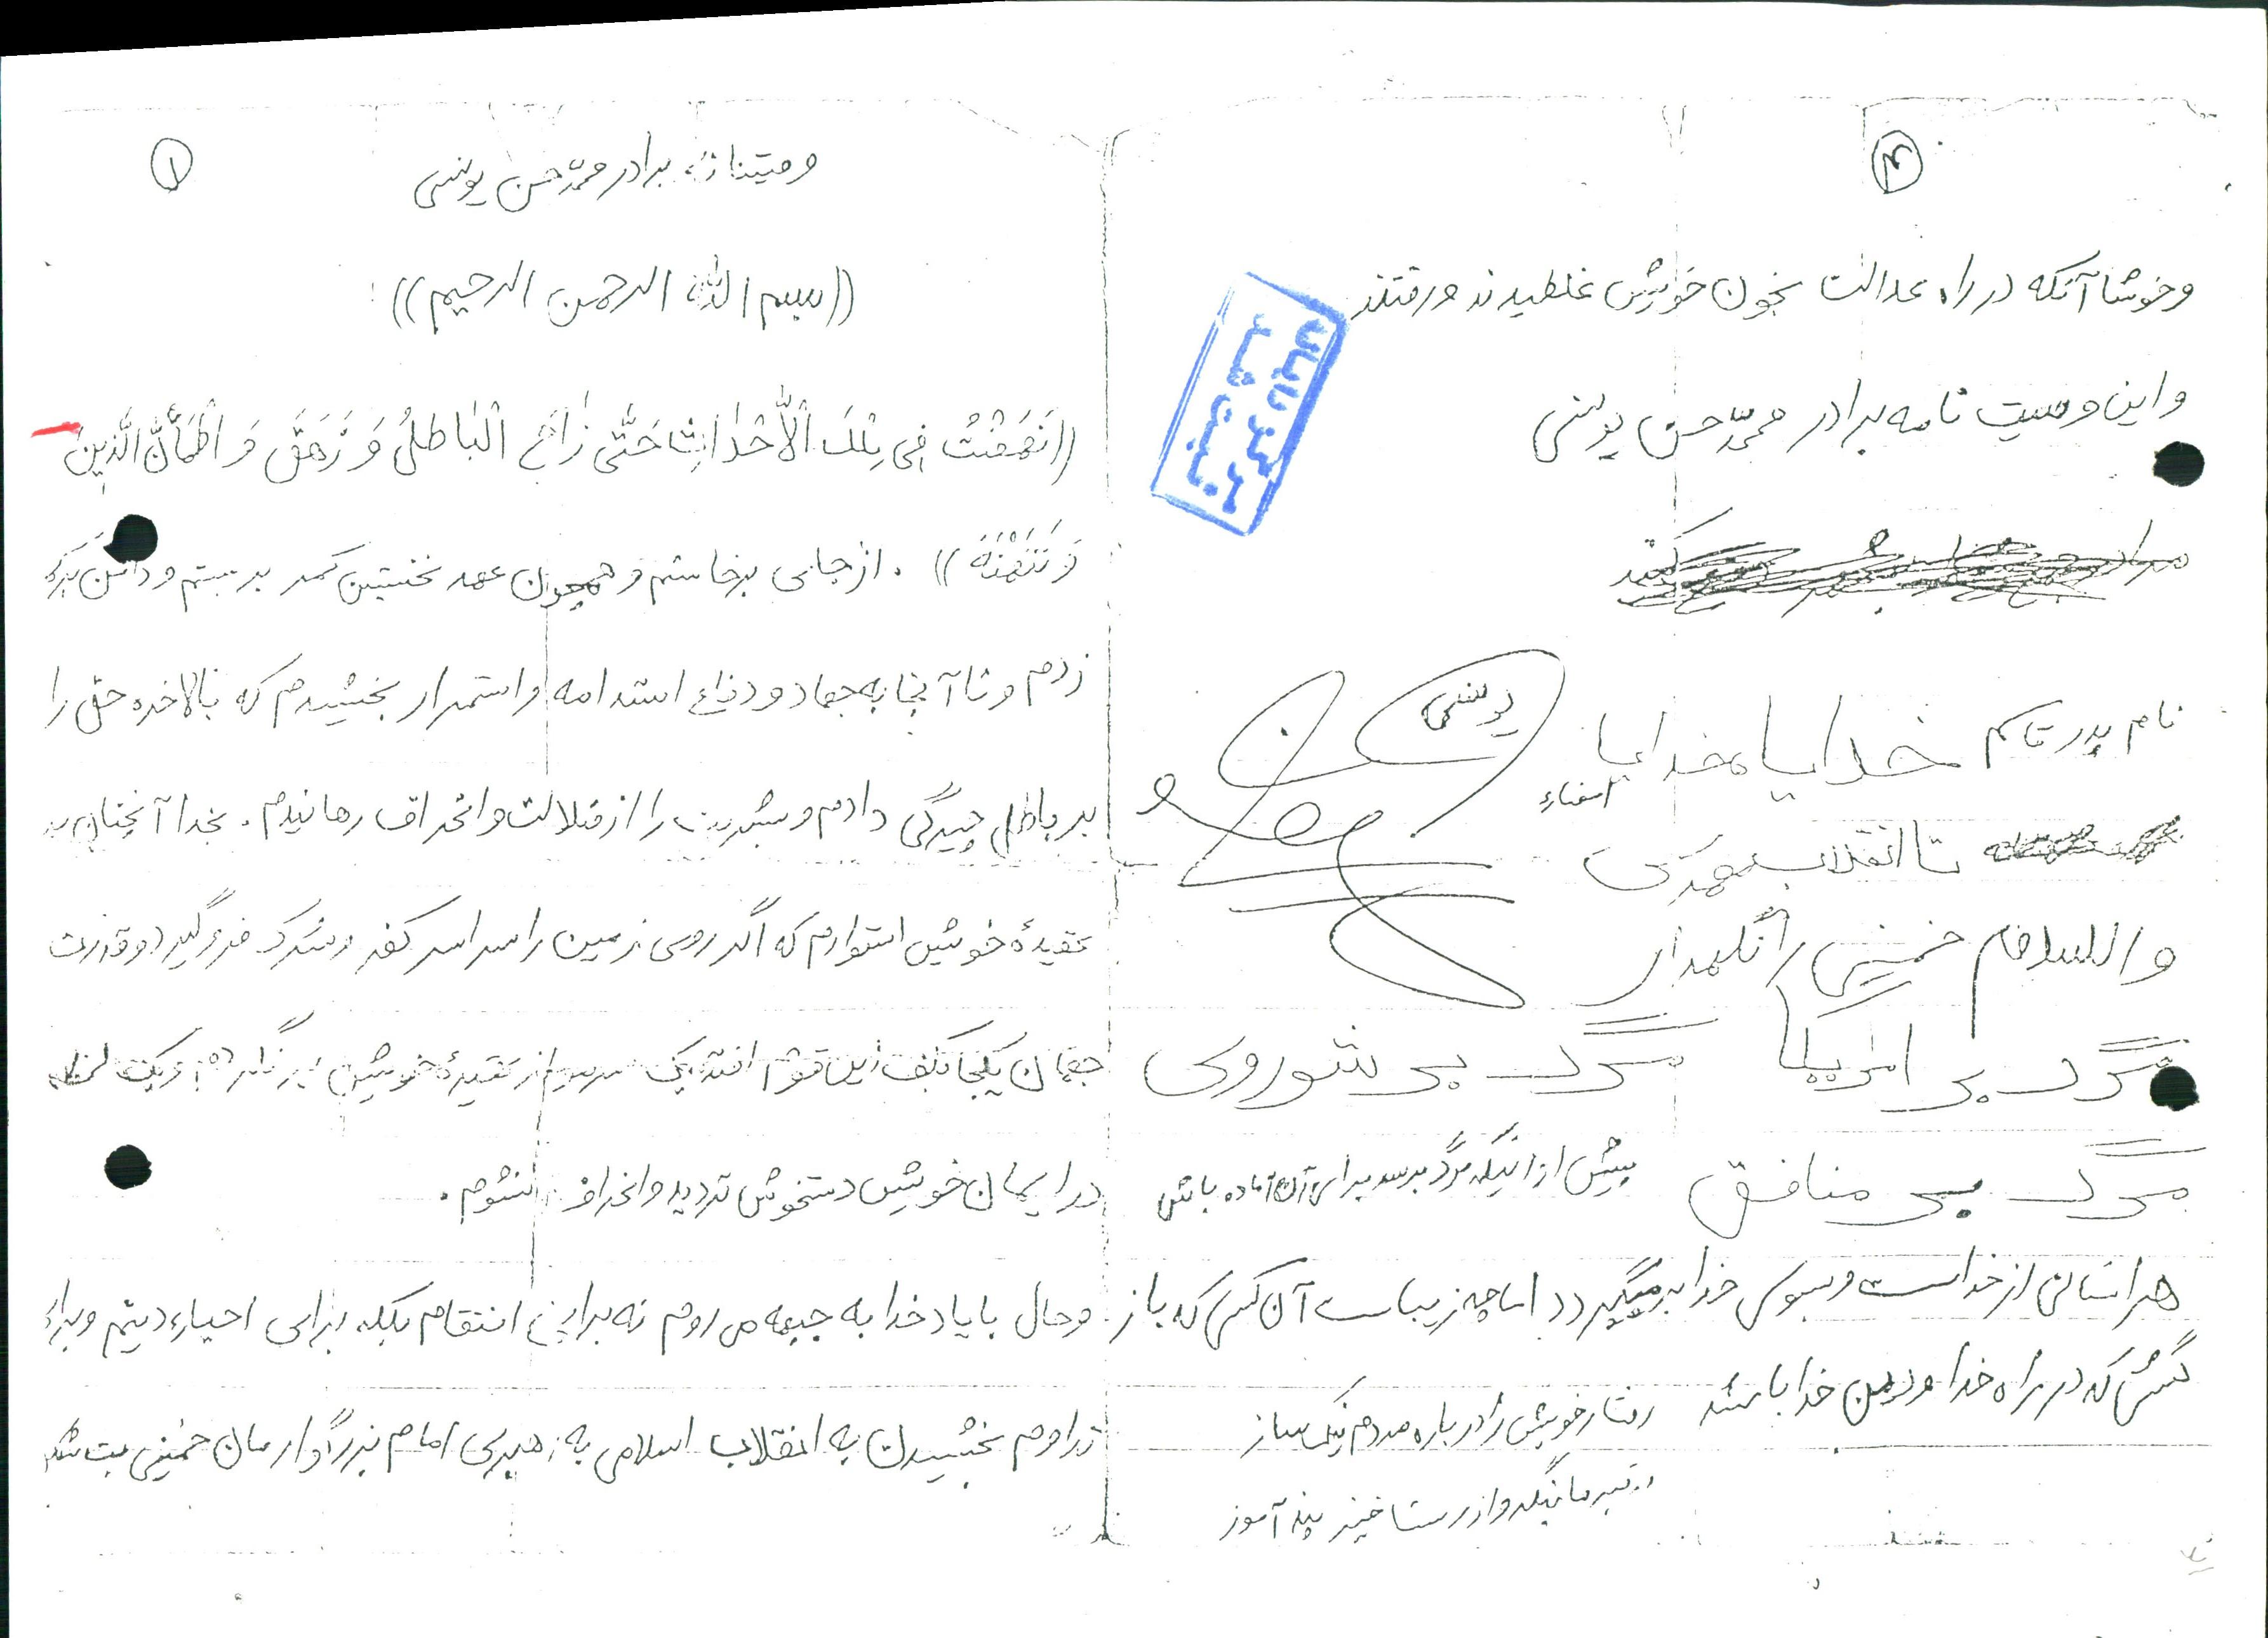 ۱
وصیتنامه برادر محمّد حسن یونسی
((بسم الله الرحمن الرحیم))
((نَهَضْتُ فِی تِلْکَ اَلْأَحْداثِ حَتَّی زَاحَ اَلْبَاطِلُ وَ زَهَقَ وَ اطْمَأَنَّ الَّدینُ
وَ تَنَهْنَهَ)) . از جای برخاستم و همچون عهد نخستین کمر بر بستم و دامن بر کمر
زدم و تا آنجا به جهاد و دفاع استدامه و استمرار بخشیدم که بالاخره حق را
بر باطل چیرگی دادم و بشریت را از ضلالت و انحراف رهانیدم . بخدا آنچنان بر
عقیدهٔ خویش استوارم که اگر روی زمین را سراسر کفر و شرک فرو گیرد و قدرت
جهان یکجا بکف این قوم افتد یک سر مو از عقیدهٔ خویش بر نگردم و یک لحظه
در ایمان خویش دستخوش تردید و انحراف نشوم .
و حال با یاد خدا به جبهه می روم نه برای انتقام بلکه برای احیاء دینم و برای
تداوم بخشیدن به انقلاب اسلامی به رهبری امام بزرگوارمان خمینی بت شکن
۴
و خوشا آنکه در راه عدالت بخون خویش غلطیدند و رفتند
و این وسیت نامه برادر محمّد حسن یونسی
کنند
نام پدر قاسم خدایا خدایا
امضاء
یونسی
تا انقلاب مهدی
والسلام خمینی را نگهدار
مرگ بر امریکا مرگ بر شوروی
مرگ بر منافق پیش از اینکه مرگ برسد برای آن آماده باش
هر انسانی از خداست و بسوی خدا برمیگردد اما چه زیباست آن کس که باز
گشش که در راه خدا و دین خدا باشد رفتار خویش را درباره مردم نیک ساز
و از رستاخیز پند آموز
مرکز نایبان
ثبت شد